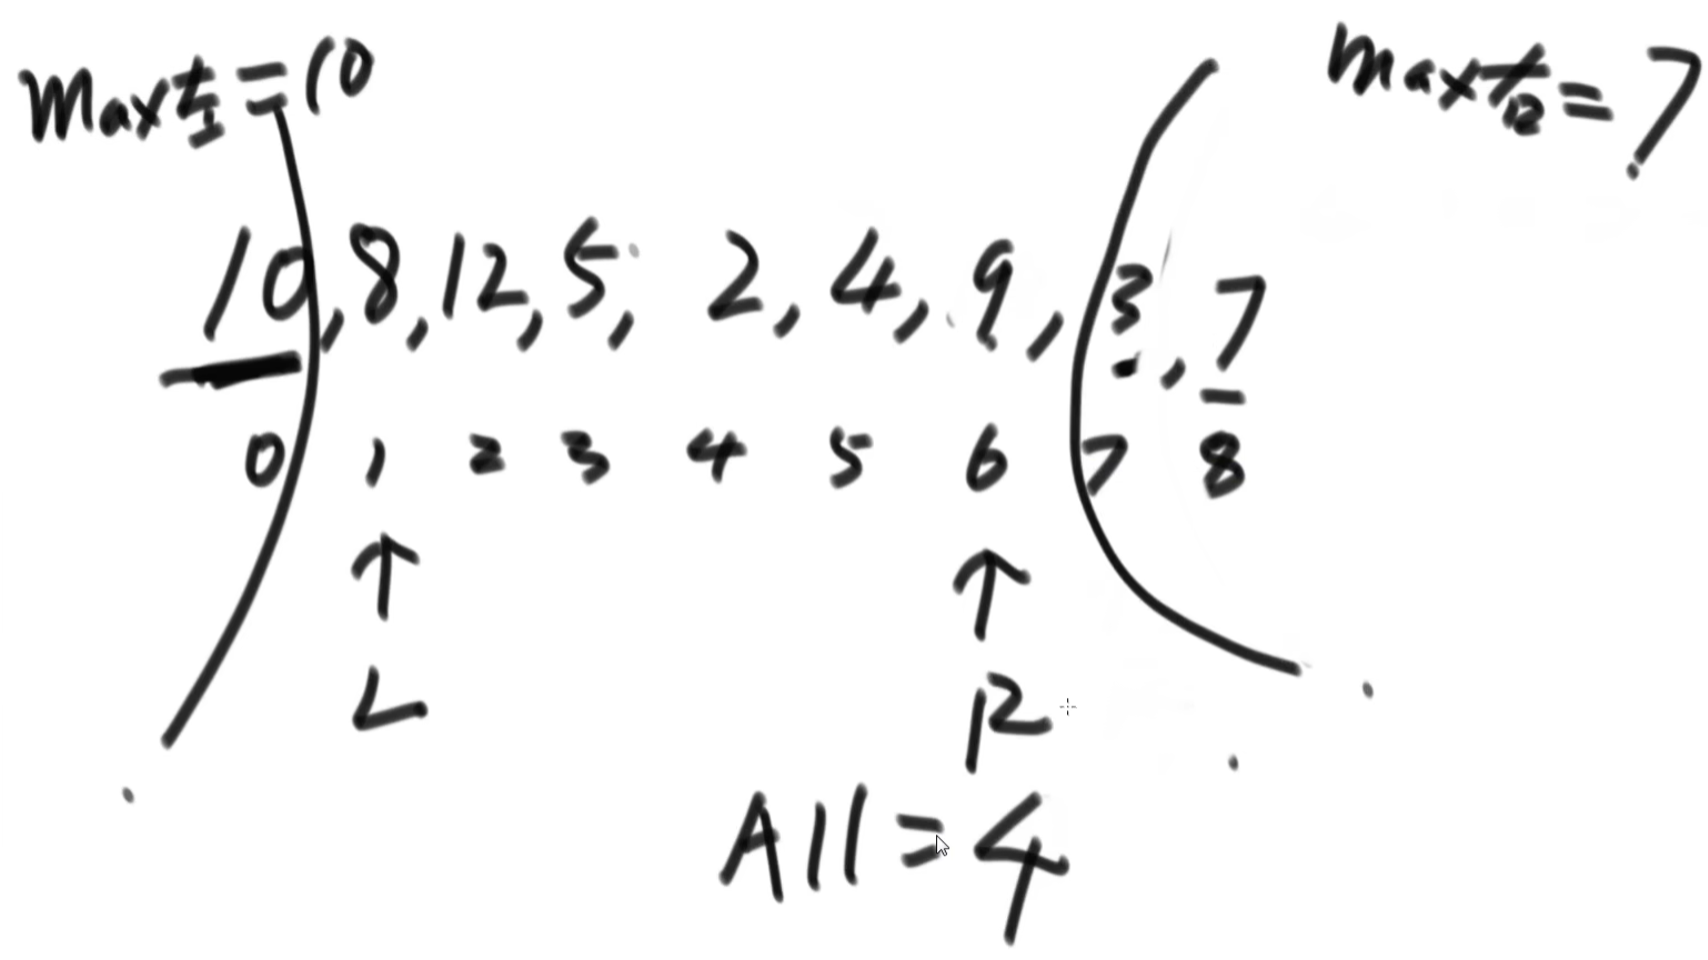 Max左=10
max右=7
10,8,12,5,2,4,9,3,7
0 1 2 3 4 5 6 7 8
↑ ↑
L R
All=4